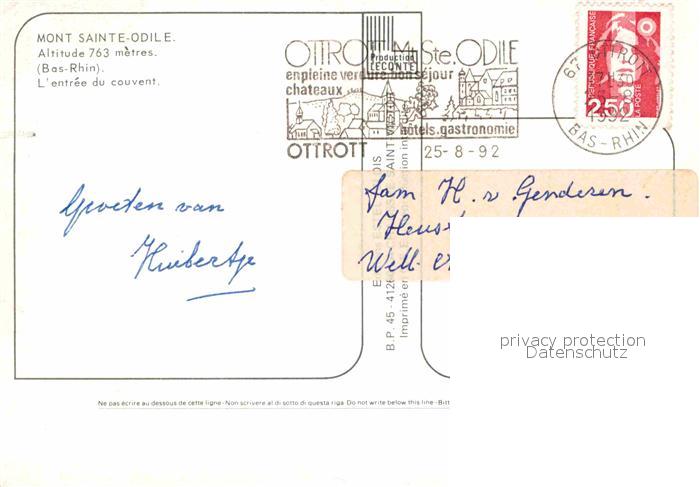 MONT SAINTE-ODILE.
Altitude 763 mètres.
(Bas-Rhin).
L'entrée du couvent.
Production
LECONTE
OTTROTT Mt Ste. ODILE
en pleine verdure bon séjour
châteaux
hôtels. gastronomie
OTTROTT
25-8-92
67 OTTROTT
1992
BAS-RHIN
REPUBLIQUE FRANÇAISE
2,50
LA POSTE
Groeten van
Huibertje
fam H. v Genderen.
Well
B.P. 45 - 4126
Imprimé en
Ne pas écrire au dessous de cette ligne - Non scrivere al di sotto di questa riga Do not write below this line - Bitt
privacy protection
Datenschutz